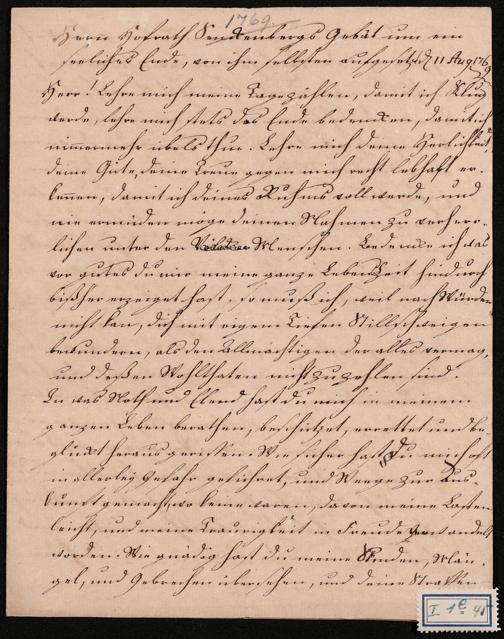 1769.
Herrn Hofrath Senckenbergs Gebät um ein
seeliches Ende, von ihm selbsten aufgesetzt d 11 Aug 1769
Herr! Lehre mich meine Tage zählen, damit ich Klug
werde, lehre mich stets das Ende bedencken, damit ich
nimmermehr übels thue. Lehre mich deine Herlichkeit,
deine Güte, deine Treue gegen mich recht lebhaft er-
kennen, damit ich deines Ruhms voll werde, und
nie ermüden möge deinen Nahmen zu verherr-
lichen unter den Menschen. Bedencke ich was
vor gutes du mir meine ganze LebensZeit hindurch
bißher erzeiget hast, so muß ich, weil nach Würden
nicht kan, dich mit eigem Tiefen Stillschweigen
bewundern, als den Allmächtigen der alles vermag,
und deßen Wohlthaten nicht zu zahlen sind.
In was Noth und Elend hast du mich in meinem
ganzen Leben berathen, beschützet, errettet und be-
glückt heraus gerissen. Wie sicher hast du mich oft
in allerley Gefahr geführet, und Weege zur Aus-
kunft gemacht, wo keine waren, davon meine Lasten
leicht, und meine Traurigkeit in Freude verwandelt
worden. Wie gnädig hast du meine Sünden, Män-
gel, und Gebrechen übersehen, und deine Straffen
I 1e 41